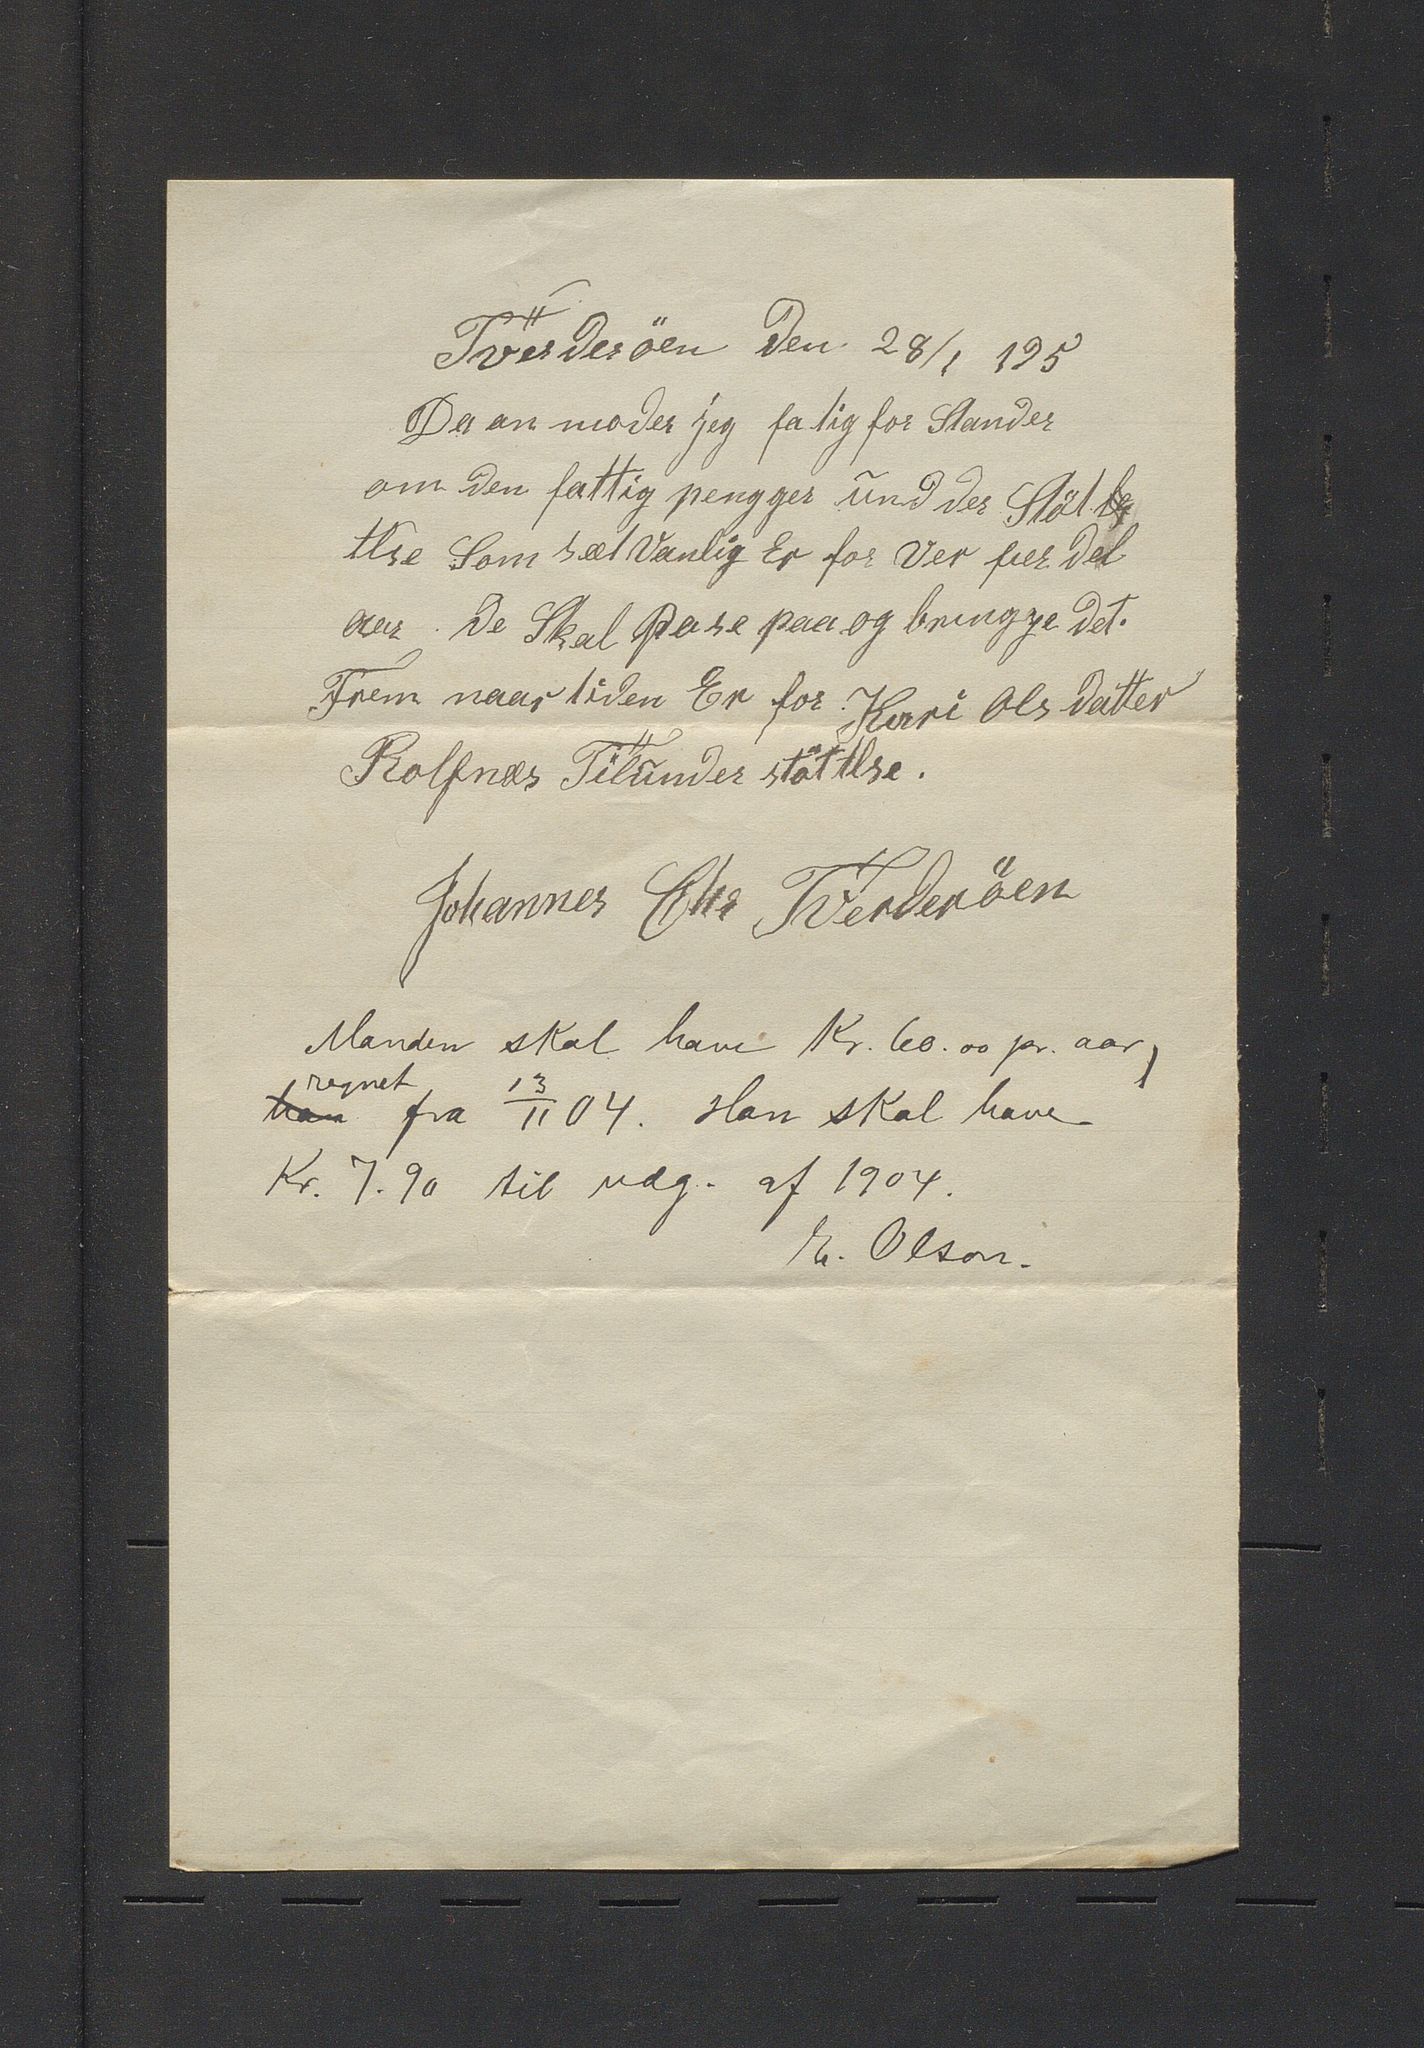 Tverderöen Den 28/1 195
Da an moder jeg fatig for Stander
om den fattig pengger und der Stöt
tlse Som sæt Vanlig Er for Ver fier del
aar. De Skal Pase paa og bringge det.
Frem naar tiden Er for Kari Ols datter
Rolfnæs Tilunder stöttlse.
Johannes Chr Tverderöen
Manden skal have Kr. 60.00 pr. aar,
regnet
fra 13/11 04. Han skal have
Kr. 7.90 til udg. af 1904.
E. Olson.